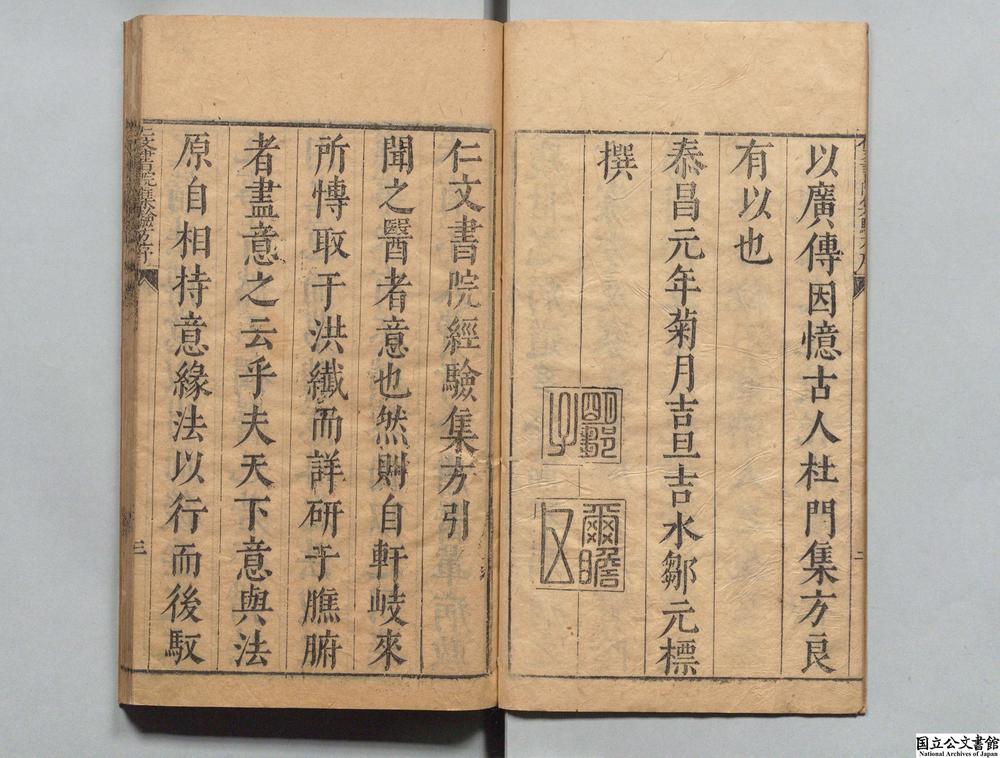 以廣傳因憶古人杜門集方良
有以也
泰昌元年菊月吉旦吉水鄒元標
撰
仁文書院經驗集方引
聞之醫者意也然則自軒岐來
所慱取于洪纖而詳研于臕腑
者盡意之云乎夫天下意與法
原自相持意緣法以行而後馭
三
爾瞻
国立公文書館
National Archives of Japan